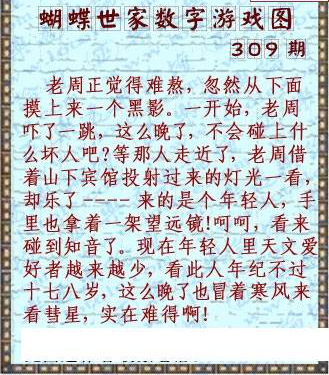 蝴蝶世家数字游戏图
309 期
老周正觉得难熬,忽然从下面
摸上来一个黑影。一开始,老周
吓了一跳,这么晚了,不会碰上什
么坏人吧?等那人走近了,老周借
着山下宾馆投射过来的灯光一看,
却乐了---- 来的是个年轻人,手
里也拿着一架望远镜!呵呵,看来
碰到知音了。现在年轻人里天文爱
好者越来越少,看此人年纪不过
十七八岁,这么晚了也冒着寒风来
看彗星,实在难得啊!